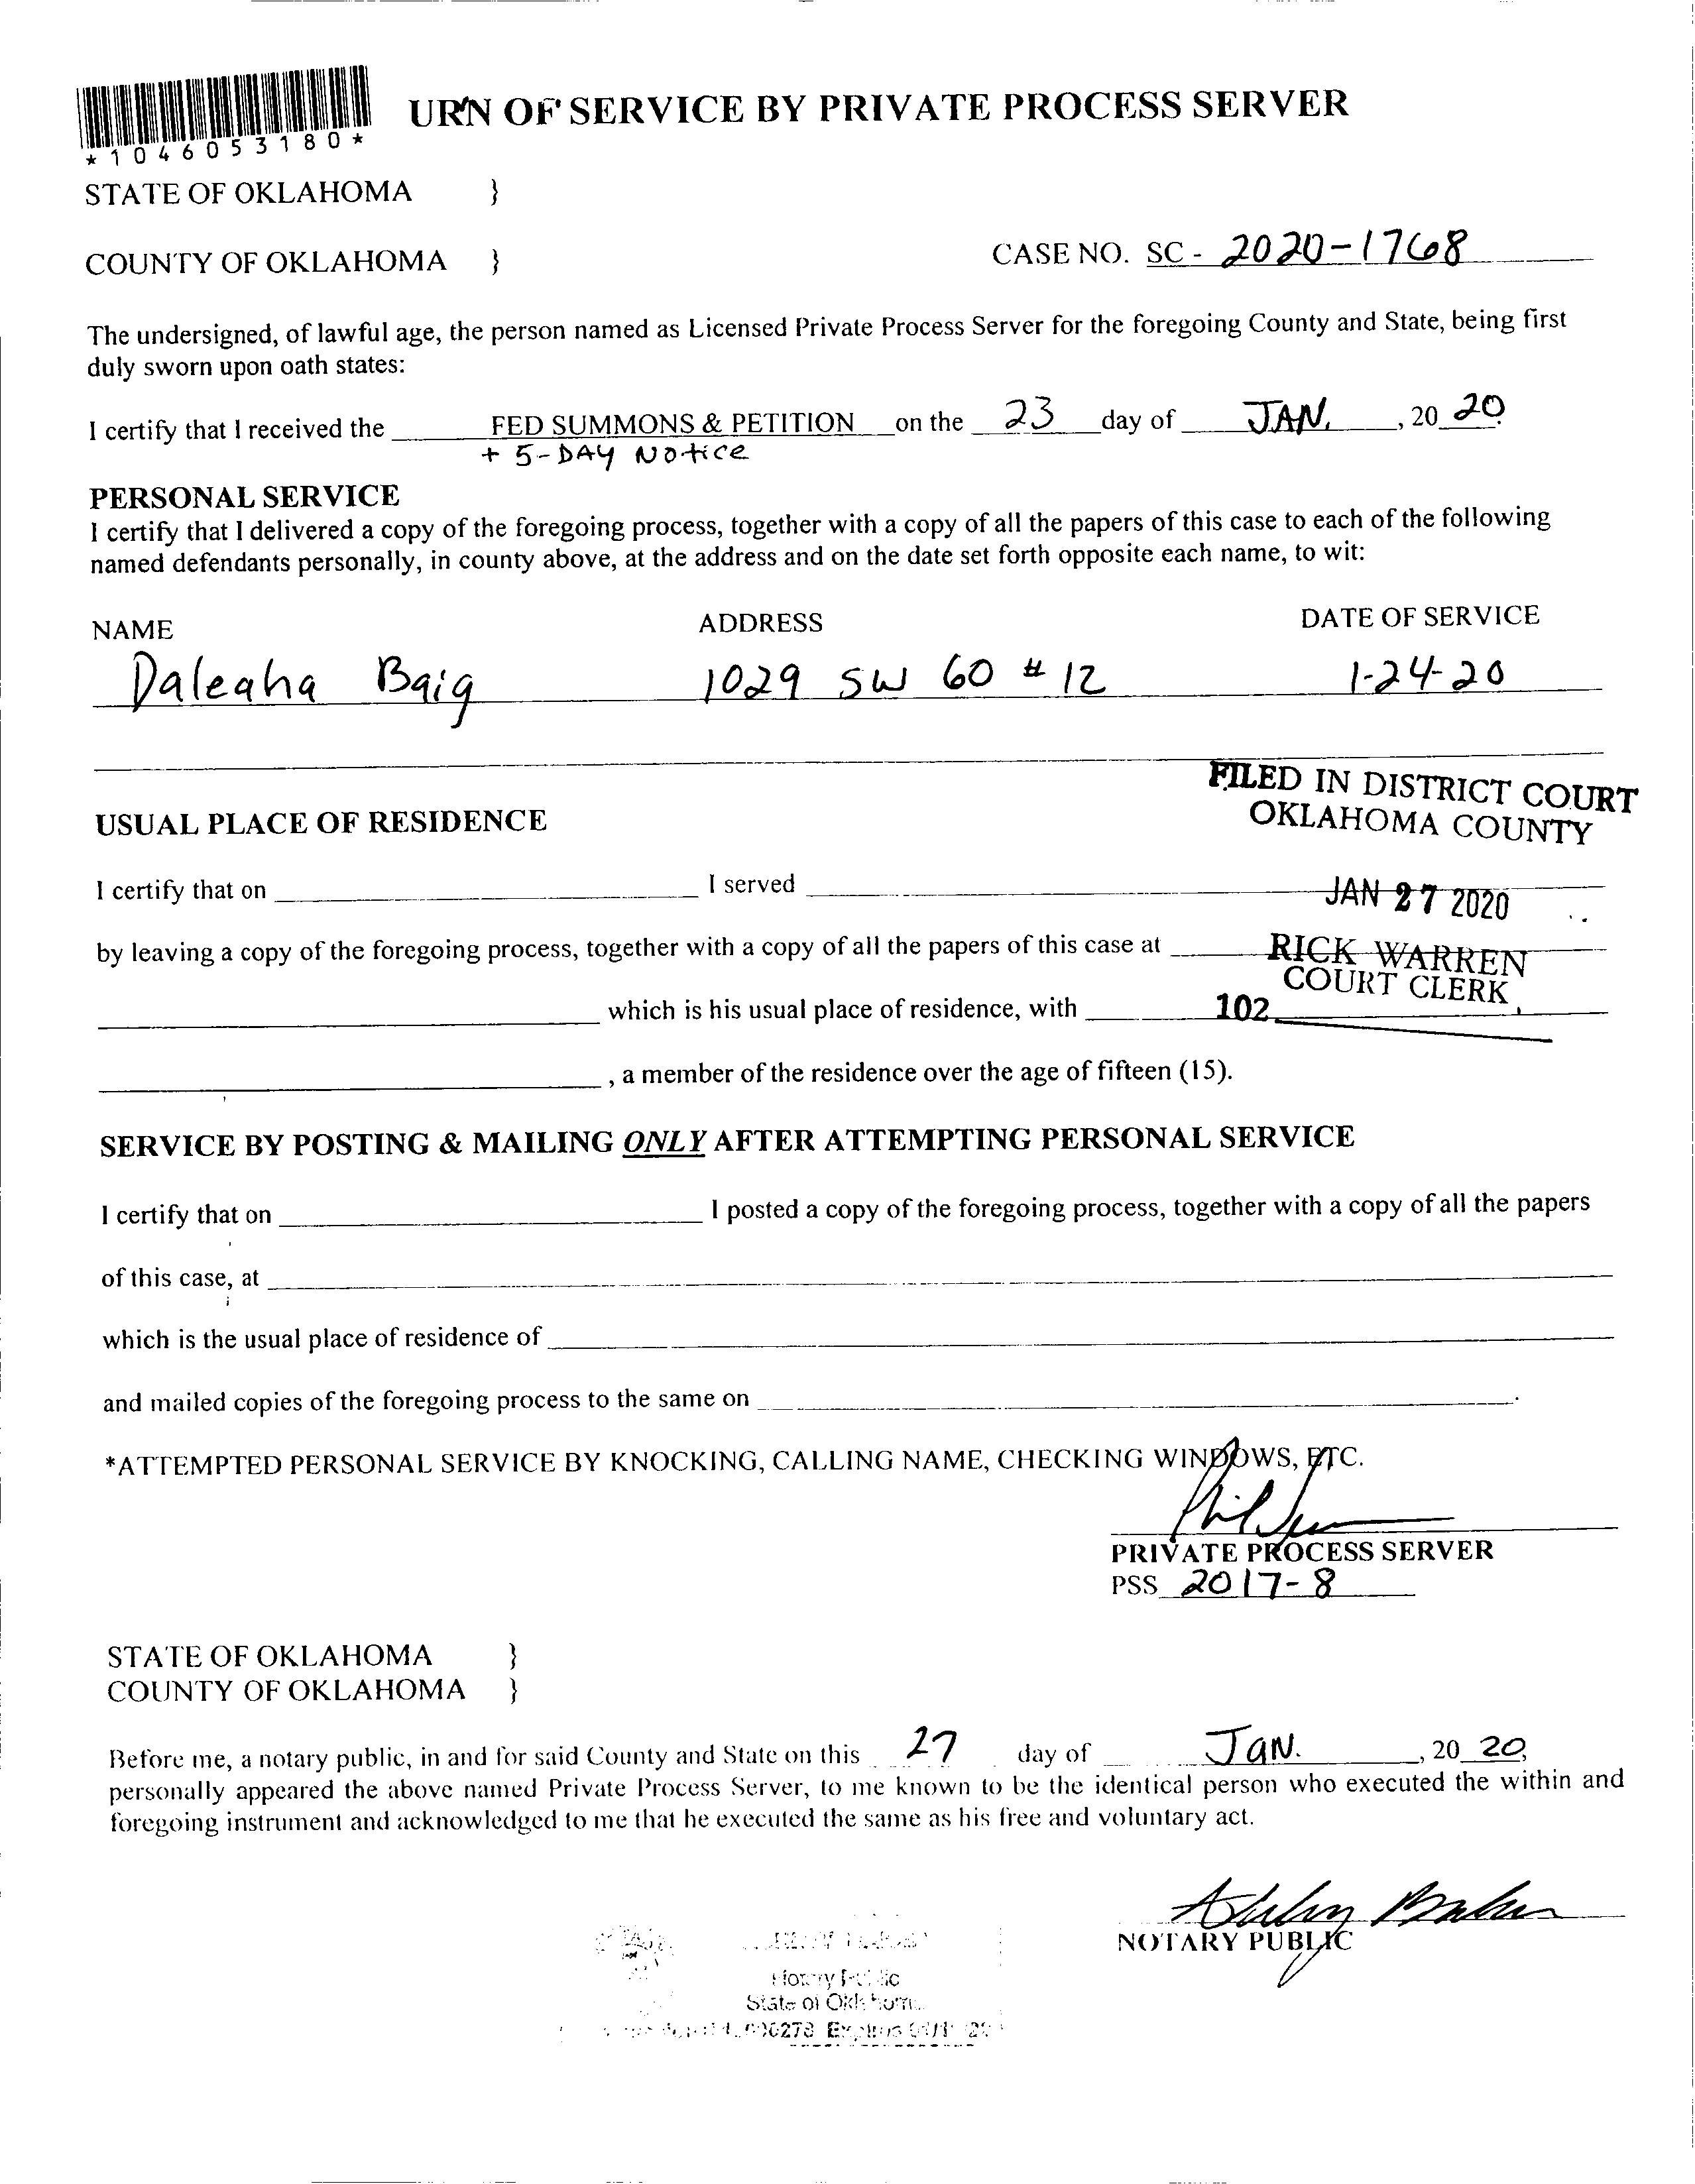 *1046053180*
URN OF SERVICE BY PRIVATE PROCESS SERVER
STATE OF OKLAHOMA }
COUNTY OF OKLAHOMA } CASE NO. SC - 2020-1768
The undersigned, of lawful age, the person named as Licensed Private Process Server for the foregoing County and State, being first
duly sworn upon oath states:
I certify that I received the FED SUMMONS & PETITION on the 23 day of JAN. , 20 20.
+ 5-DAY Notice
PERSONAL SERVICE
I certify that I delivered a copy of the foregoing process, together with a copy of all the papers of this case to each of the following
named defendants personally, in county above, at the address and on the date set forth opposite each name, to wit:
NAME ADDRESS DATE OF SERVICE
Daleaha Baig 1029 SW 60 # 12 1-24-20
FILED IN DISTRICT COURT
OKLAHOMA COUNTY
USUAL PLACE OF RESIDENCE
I certify that on I served
JAN 27 2020
by leaving a copy of the foregoing process, together with a copy of all the papers of this case at
RICK WARREN
COURT CLERK
which is his usual place of residence, with
102
, a member of the residence over the age of fifteen (15).
SERVICE BY POSTING & MAILING ONLY AFTER ATTEMPTING PERSONAL SERVICE
I certify that on I posted a copy of the foregoing process, together with a copy of all the papers
of this case, at
which is the usual place of residence of
and mailed copies of the foregoing process to the same on .
*ATTEMPTED PERSONAL SERVICE BY KNOCKING, CALLING NAME, CHECKING WINDOWS, ETC.
PRIVATE PROCESS SERVER
PSS 2017-8
STATE OF OKLAHOMA }
COUNTY OF OKLAHOMA }
Before me, a notary public, in and for said County and State on this 27 day of JAN. , 20 20,
personally appeared the above named Private Process Server, to me known to be the identical person who executed the within and
foregoing instrument and acknowledged to me that he executed the same as his free and voluntary act.
NOTARY PUBLIC
Notary Public
State of Oklahoma
Expires